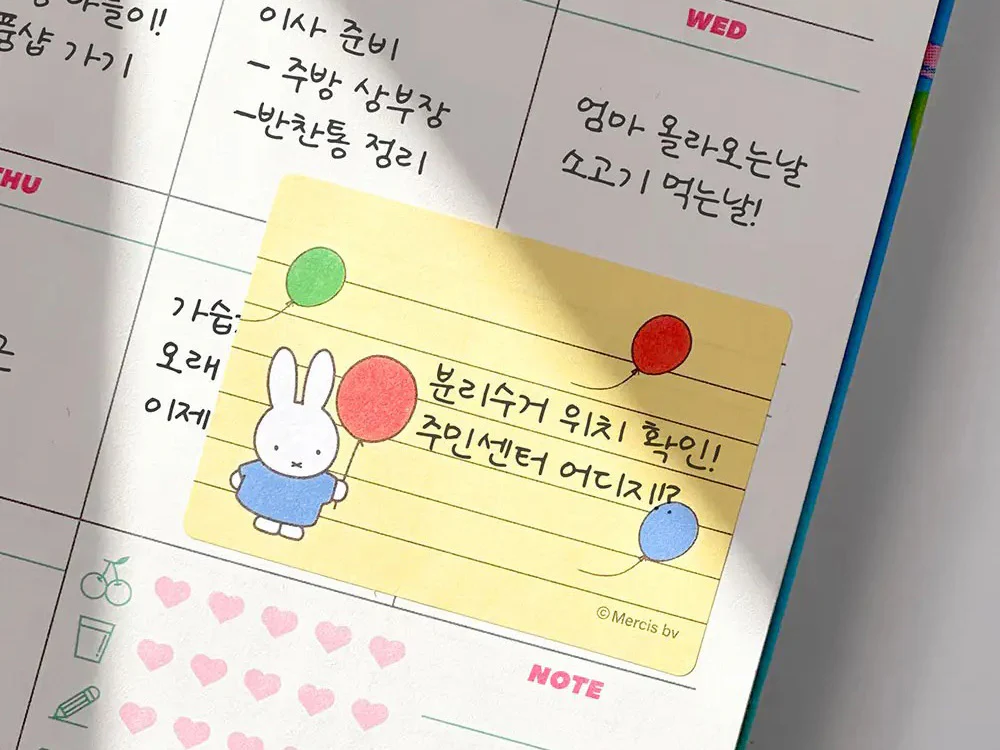 이!
풍샵 가기
이사 준비
- 주방 상부장
-반찬통 정리
WED
엄마 올라오는날
소고기 먹는날!
THU
가습
오래
이제
분리수거 위치 확인!
주민센터 어디지!?
©Mercis bv
NOTE